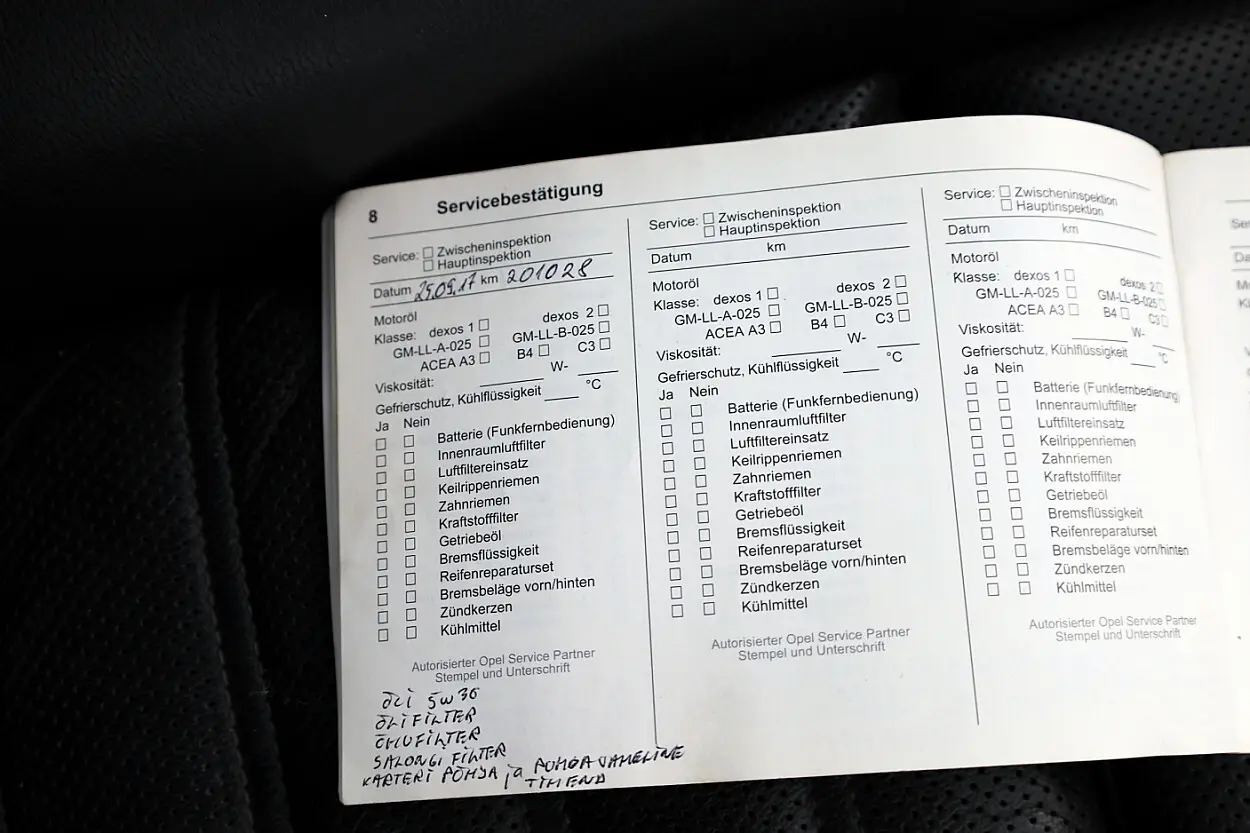 8 Servicebestätigung
Service: Zwischeninspektion
Hauptinspektion
Datum 25.09.17 km 201028
Motoröl
Klasse: dexos 1 dexos 2
GM-LL-A-025 GM-LL-B-025
ACEA A3 B4 C3
Viskosität: W-
Gefrierschutz, Kühlflüssigkeit °C
Ja Nein
Batterie (Funkfernbedienung)
Innenraumluftfilter
Luftfiltereinsatz
Keilrippenriemen
Zahnriemen
Kraftstofffilter
Getriebeöl
Bremsflüssigkeit
Reifenreparaturset
Bremsbeläge vorn/hinten
Zündkerzen
Kühlmittel
Autorisierter Opel Service Partner
Stempel und Unterschrift
ÕLI 5W30
ÕLIFILTER
ÕHUFILTER
SALONGI FILTER
KARTERI PÕHJA ja PUMBA VAHELINE
TIHEND
Service: Zwischeninspektion
Hauptinspektion
Datum km
Motoröl
Klasse: dexos 1 dexos 2
GM-LL-A-025 GM-LL-B-025
ACEA A3 B4 C3
Viskosität: W-
Gefrierschutz, Kühlflüssigkeit °C
Ja Nein
Batterie (Funkfernbedienung)
Innenraumluftfilter
Luftfiltereinsatz
Keilrippenriemen
Zahnriemen
Kraftstofffilter
Getriebeöl
Bremsflüssigkeit
Reifenreparaturset
Bremsbeläge vorn/hinten
Zündkerzen
Kühlmittel
Autorisierter Opel Service Partner
Stempel und Unterschrift
Service: Zwischeninspektion
Hauptinspektion
Datum km
Motoröl
Klasse: dexos 1 dexos 2
GM-LL-A-025 GM-LL-B-025
ACEA A3 B4 C3
Viskosität: W-
Gefrierschutz, Kühlflüssigkeit °C
Ja Nein
Batterie (Funkfernbedienung)
Innenraumluftfilter
Luftfiltereinsatz
Keilrippenriemen
Zahnriemen
Kraftstofffilter
Getriebeöl
Bremsflüssigkeit
Reifenreparaturset
Bremsbeläge vorn/hinten
Zündkerzen
Kühlmittel
Autorisierter Opel Service Partner
Stempel und Unterschrift